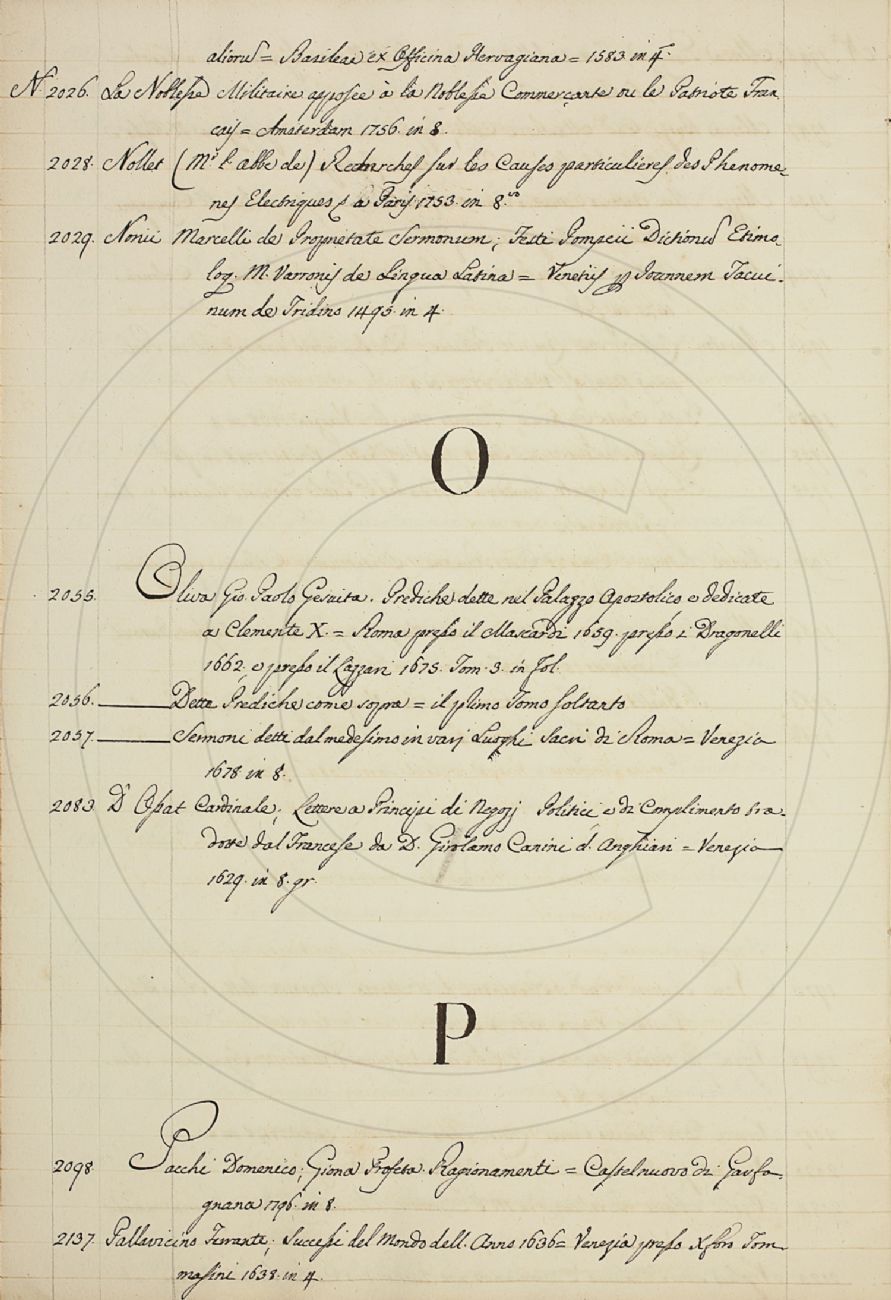 aliorũ = Basileae ex Officina Hervagiana = 1583. in 4.º
N.º 2026. La Noblesse Militaire apposée à la Noblesse Commerçante ou le Patriote Fran-
çais = Amsterdam 1756. in 8.
2028. Nollet (Mr. l'abbé de) Recherches sur les Causes particulieres des Phenome-
nes Electriques à Paris 1753. in 8.vo
2029. Nonii Marcelli de Proprietate Sermonum; Festi Pompeii Dictionũ Etimo-
log. M. Varronis de Lingua Latina = Venetiis p Joannem Tacui-
num de Tridino 1495. in 4.
O
2055. Oliva Gio. Paolo Gesuita. Prediche dette nel Palazzo Apostolico e dedicate
a Clemente X. = Roma presso il Mascardi 1659. presso i Dragonelli
1662. e presso il Lazzari 1675. Tom. 3. in fol.
2056. Dette Prediche come sopra = il primo Tomo soltanto
2057. Sermoni detti dal medesimo in varj Luoghi Sacri di Roma = Venezia
1678 in 8.
2083. D'Ossat Cardinale; Lettere a Principi di Negozj Politici e di Complimento tra-
dotte dal Francese da D. Girolamo Canini d'Anghiari = Venezia
1629. in 8. gr.
P
2098. Pacchi Domenico; Giona Profeta. Ragionamenti = Castelnuovo di Garfa-
gnana 1796. in 8.
2137. Pallavicino Ferrante; Successi del Mondo dell'Anno 1636 = Venezia presso Xforo Tom-
masini 1638. in 4.